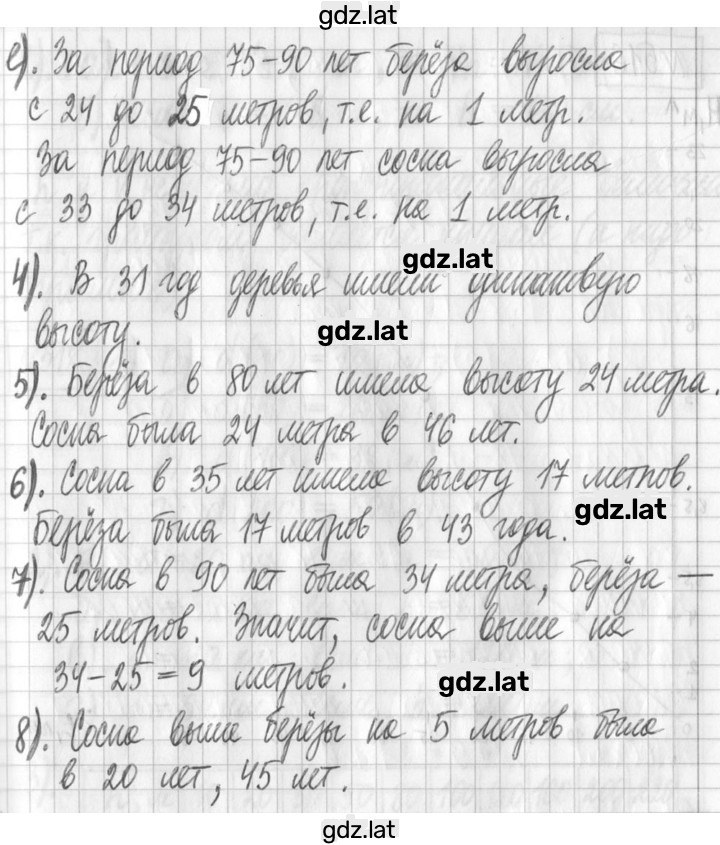 gdz.lat
е). За период 75-90 лет берёза выросла
с 24 до 25 метров, т.е. на 1 метр.
За период 75-90 лет сосна выросла
с 33 до 34 метров, т.е. на 1 метр.
gdz.lat
4). В 31 год деревья имели одинаковую
gdz.lat
высоту.
5). Берёза в 80 лет имела высоту 24 метра.
Сосна была 24 метра в 46 лет.
6). Сосна в 35 лет имела высоту 17 метров.
gdz.lat
Берёза была 17 метров в 43 года.
7). Сосна в 90 лет была 34 метра, берёза —
25 метров. Значит, сосна выше на
34-25=9 метров.
gdz.lat
8). Сосна выше берёзы на 5 метров была
в 20 лет, 45 лет.
gdz.lat